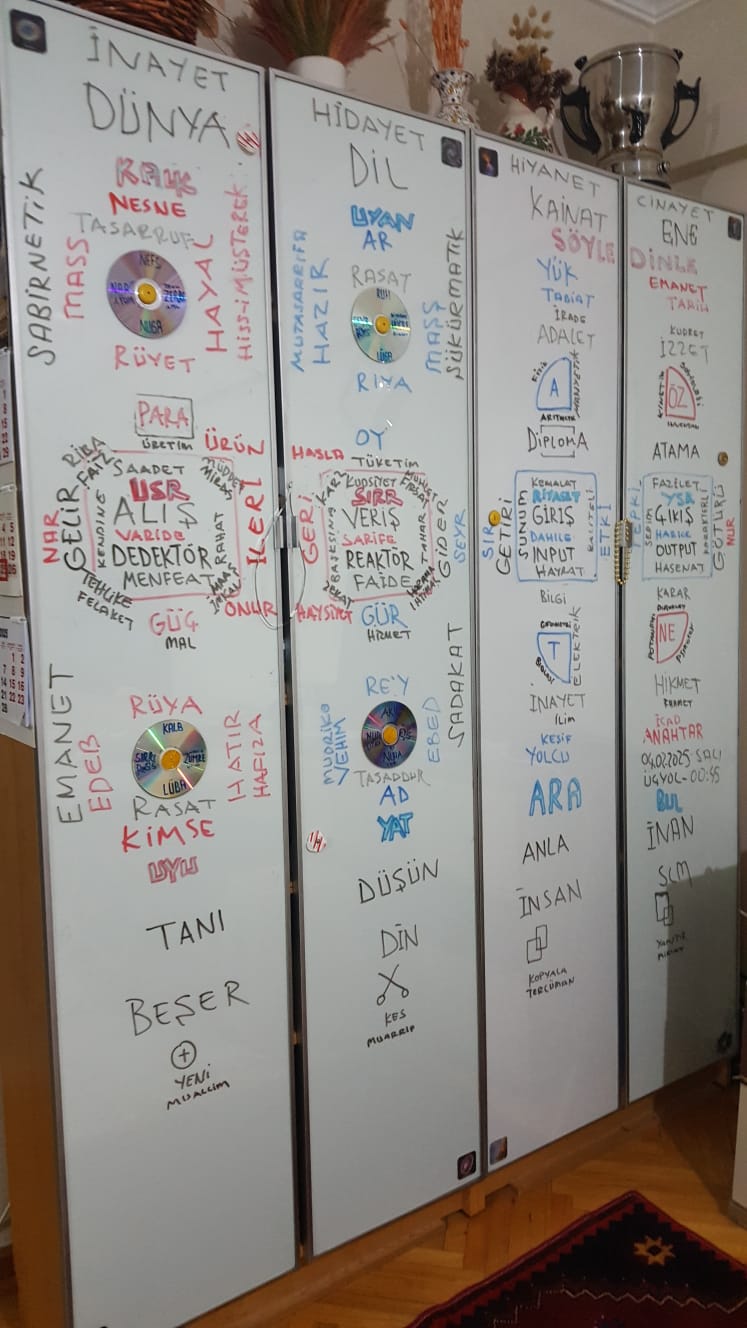 İNAYET
DÜNYA
SABİRNETİK
KALK
NESNE
TASARRUF
MASS
HAYAL
HİSS-İ MÜŞTEREK
NEFS
NUHA
RÜYET
PARA
ÜRETİM
ÜRÜN
RİBA
FAİZ
SAADET
USR
ALIŞ
VARİDE
DEDEKTÖR
MENFEAT
KENDİNE
RAHAT
NAR
GELİR
İLERİ
TEHLİKE
FELAKET
ONUR
GÜÇ
MAL
EMANET
EDEB
RÜYA
KALB
LÜBA
HATIR
HAFIZA
RASAT
KİMSE
UYU
TANI
BEŞER
YENİ
MUALLİM
HİDAYET
DİL
UYAN
AR
RASAT
MUTASARRIFA
HAZIR
RUH
MASS
SÜKÜRMATİK
RIYA
OY
HASLA
TÜKETİM
KARZ
KUDSİYET
SIRR
VERİŞ
SARİFE
REAKTÖR
FAİDE
BAŞKASINA
GERİ
GİDER
SEYR
HAYSİYET
GÜR
HİZMET
RE'Y
SADAKAT
EBED
MÜDRİKE
VEHİM
TASADDUR
AD
YAT
DÜŞÜN
DİN
KES
MUARRİF
HİYANET
KAİNAT
SÖYLE
YÜK
TABİAT
İRADE
ADALET
A
MANYETİK
ARİTMETİK
DİPLOMA
KEMALAT
RİYASET
GİRİŞ
DAHİLE
İNPUT
HAYRAT
SUNUM
SIR
GETİRİ
ETKİ
BİLGİ
GEOMETRİ
T
ELEKTRİK
İNAYET
İLİM
KEŞİF
YOLCU
ARA
ANLA
İNSAN
KOPYALA
TERCÜMAN
CİNAYET
ENE
DİNLE
EMANET
TARİH
KUDRET
İZZET
KİNETİK
ÖZ
ATAMA
FAZİLET
YSR
ÇIKIŞ
HARİCE
OUTPUT
HASENAT
TEPKİ
GÖTÜRÜ
NUR
KARAR
NE
HİKMET
RAHMET
İCAD
ANAHTAR
04.02.2025 SALI
ÜÇYOL-00:45
BUL
İNAN
SCM